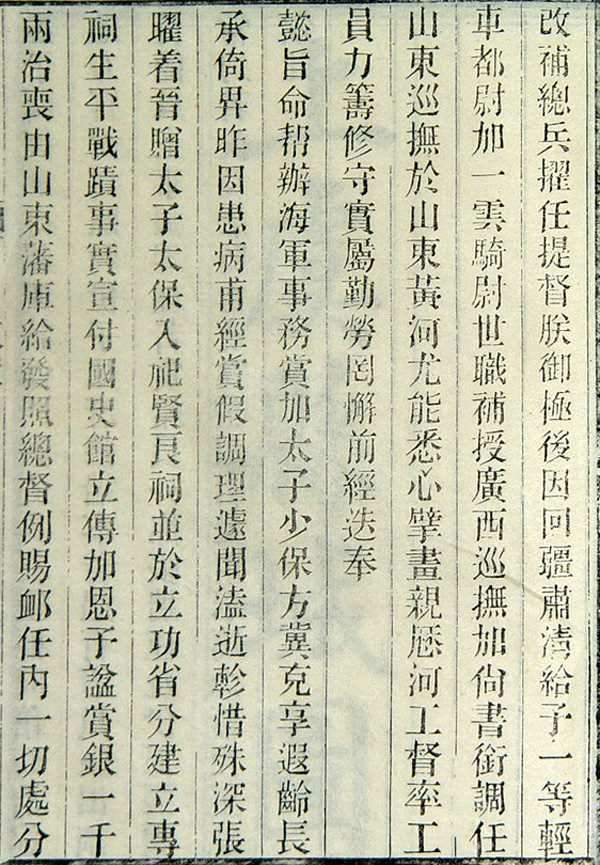 改補總兵擢任提督朕御極後因回疆肅清給予一等輕
車都尉加一雲騎尉世職補授廣西巡撫加尙書銜調任
山東巡撫於山東黃河尤能悉心擘畫親歷河工督率工
員力籌修守實屬勤勞罔懈前經迭奉
懿旨命帮辦海軍事務賞加太子少保方冀克享遐齡長
承倚畀昨因患病甫經賞假調理遽聞溘逝軫惜殊深張
曜着晉贈太子太保入祀賢良祠並於立功省分建立專
祠生平戰蹟事實宣付國史館立傳加恩予諡賞銀一千
兩治喪由山東藩庫給發照總督例賜䘏任內一切處分